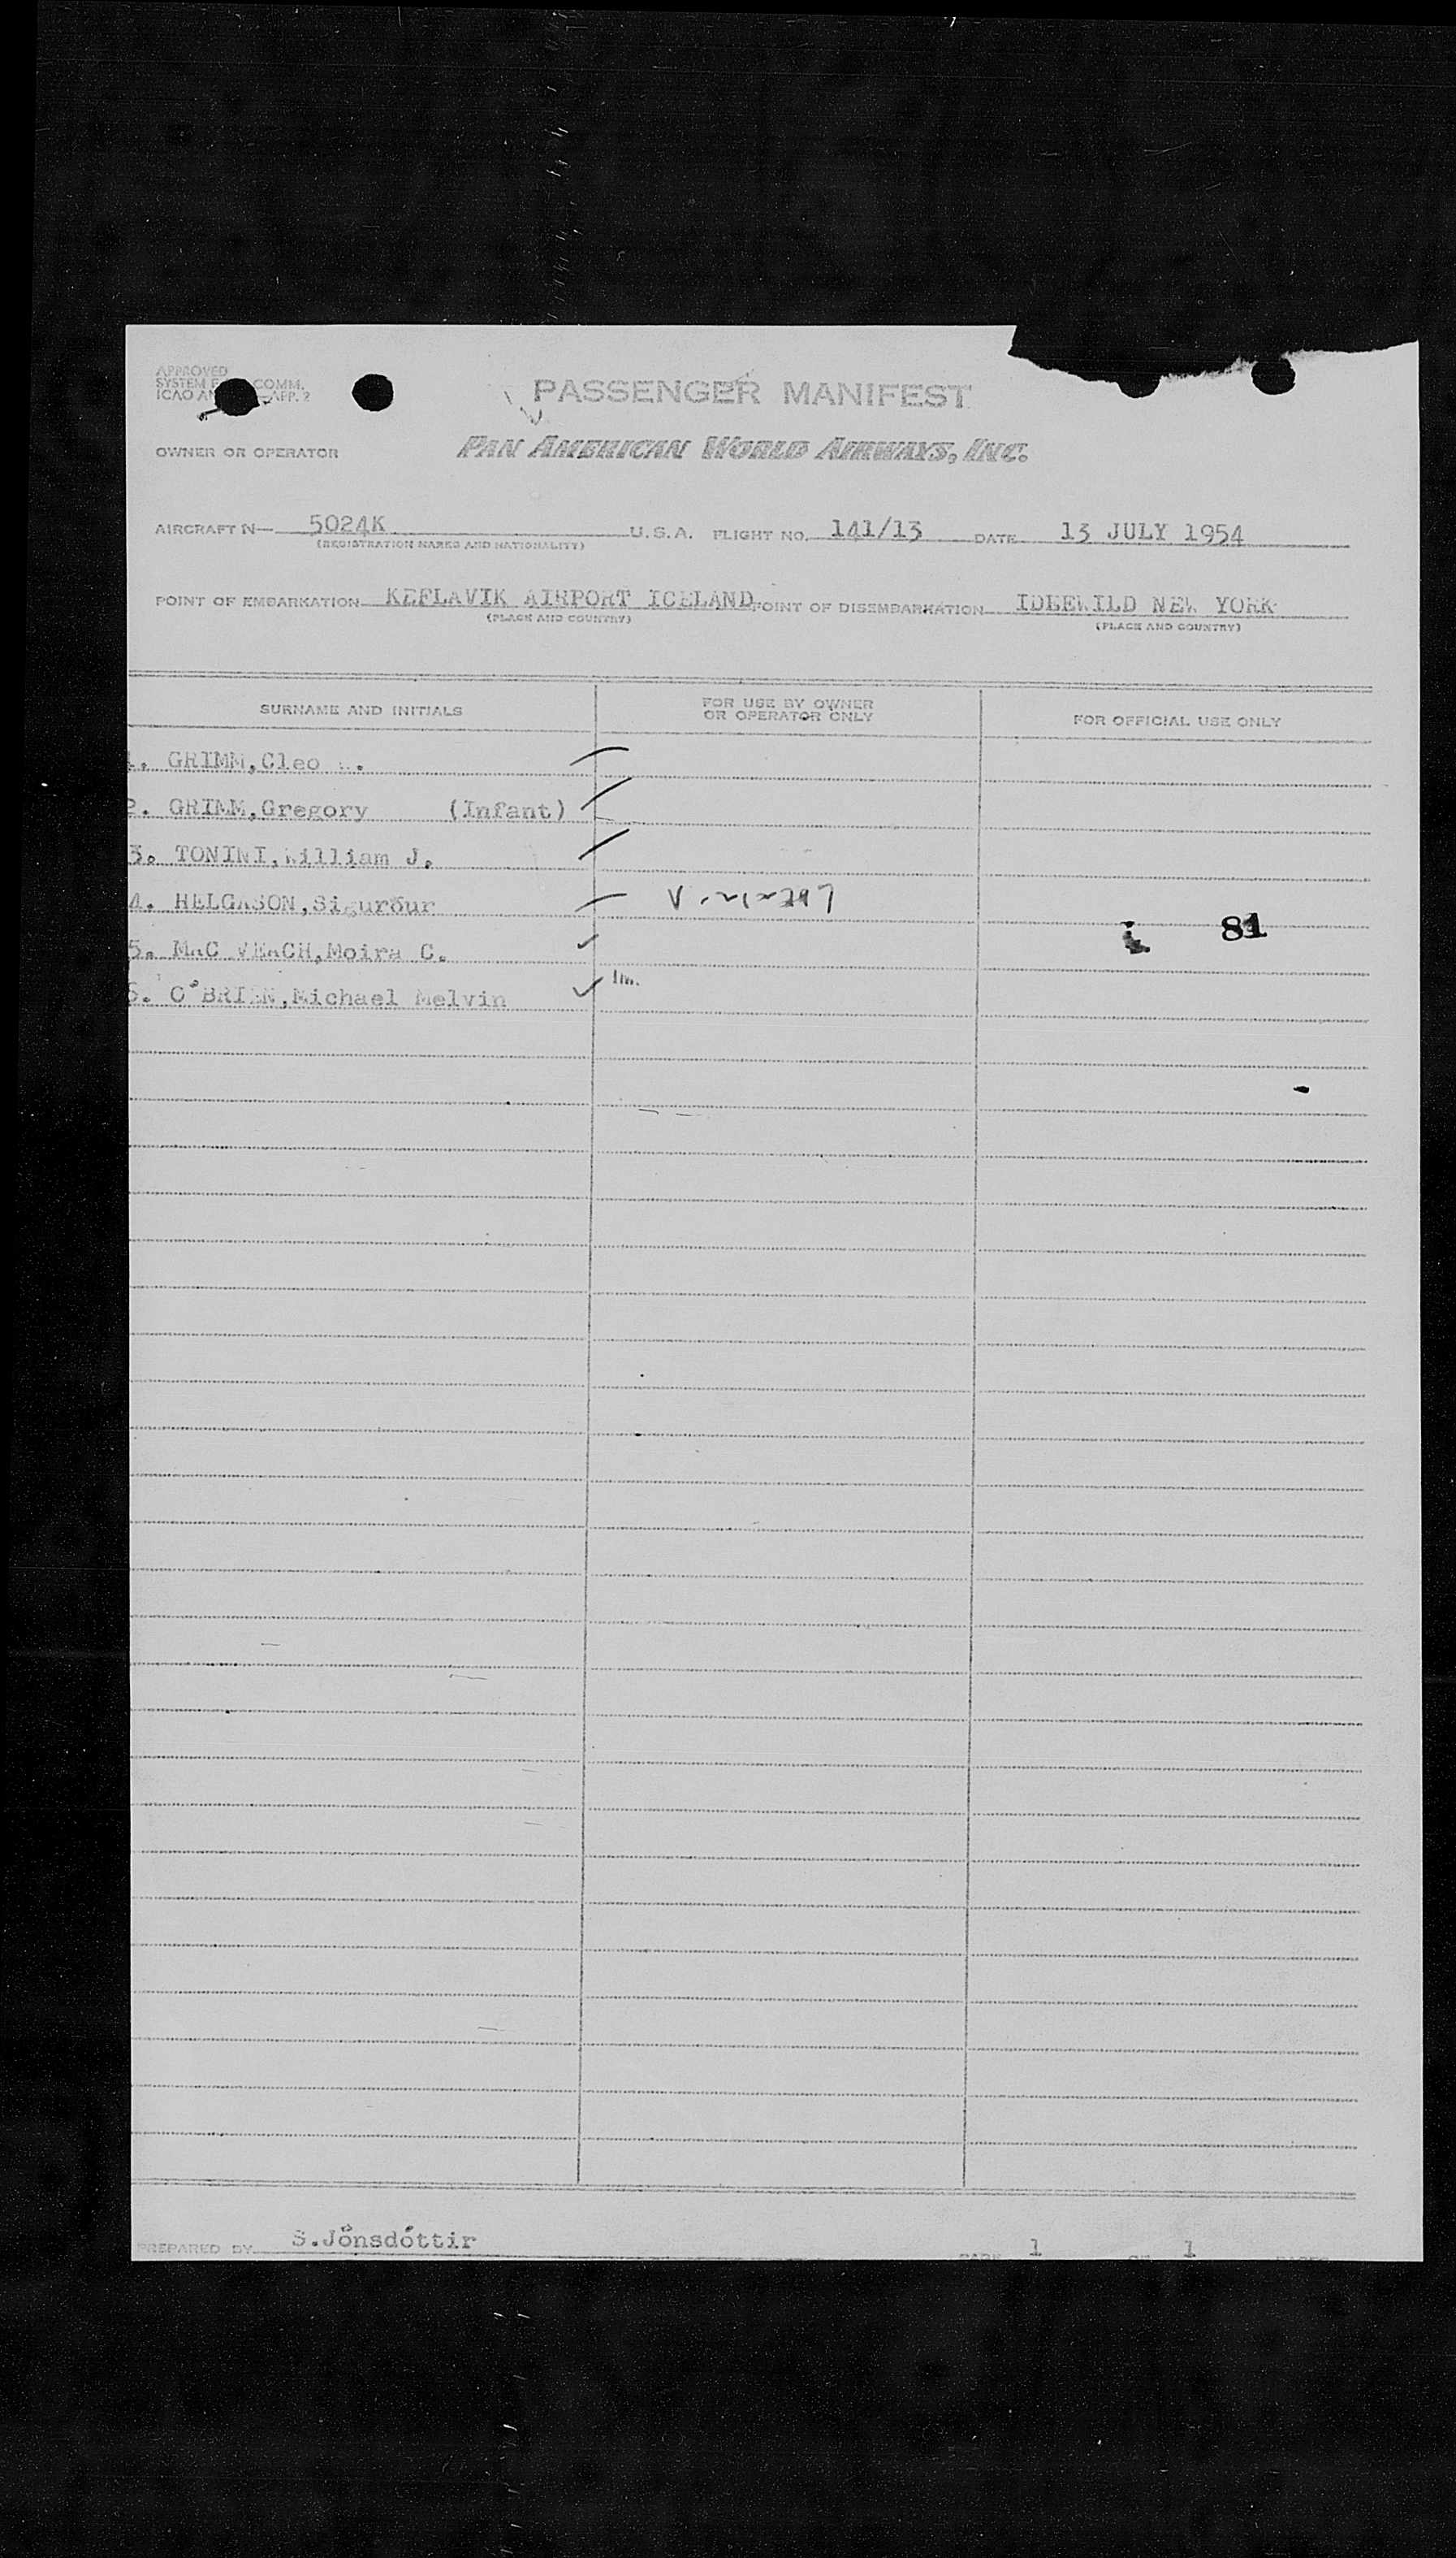 APPROVED
SYSTEM COMM.
ICAO APP. 2
PASSENGER MANIFEST
OWNER OR OPERATOR PAN AMERICAN WORLD AIRWAYS, INC.
AIRCRAFT N— 5024K U.S.A. FLIGHT NO. 141/13 DATE 13 JULY 1954
(REGISTRATION MARKS AND NATIONALITY)
POINT OF EMBARKATION KEFLAVIK AIRPORT ICELAND POINT OF DISEMBARKATION IDLEWILD NEW YORK
(PLACE AND COUNTRY) (PLACE AND COUNTRY)
SURNAME AND INITIALS FOR USE BY OWNER OR OPERATOR ONLY FOR OFFICIAL USE ONLY
1. GRIMM,Cleo
2. GRIMM,Gregory (Infant)
3. TONINI,William J.
4. HELGASON,Sigurður
81
5. MAC VEACH,Moira C.
6. O'BRIEN,Michael Melvin
PREPARED BY S.Jónsdóttir PAGE 1 OF 1 PAGES